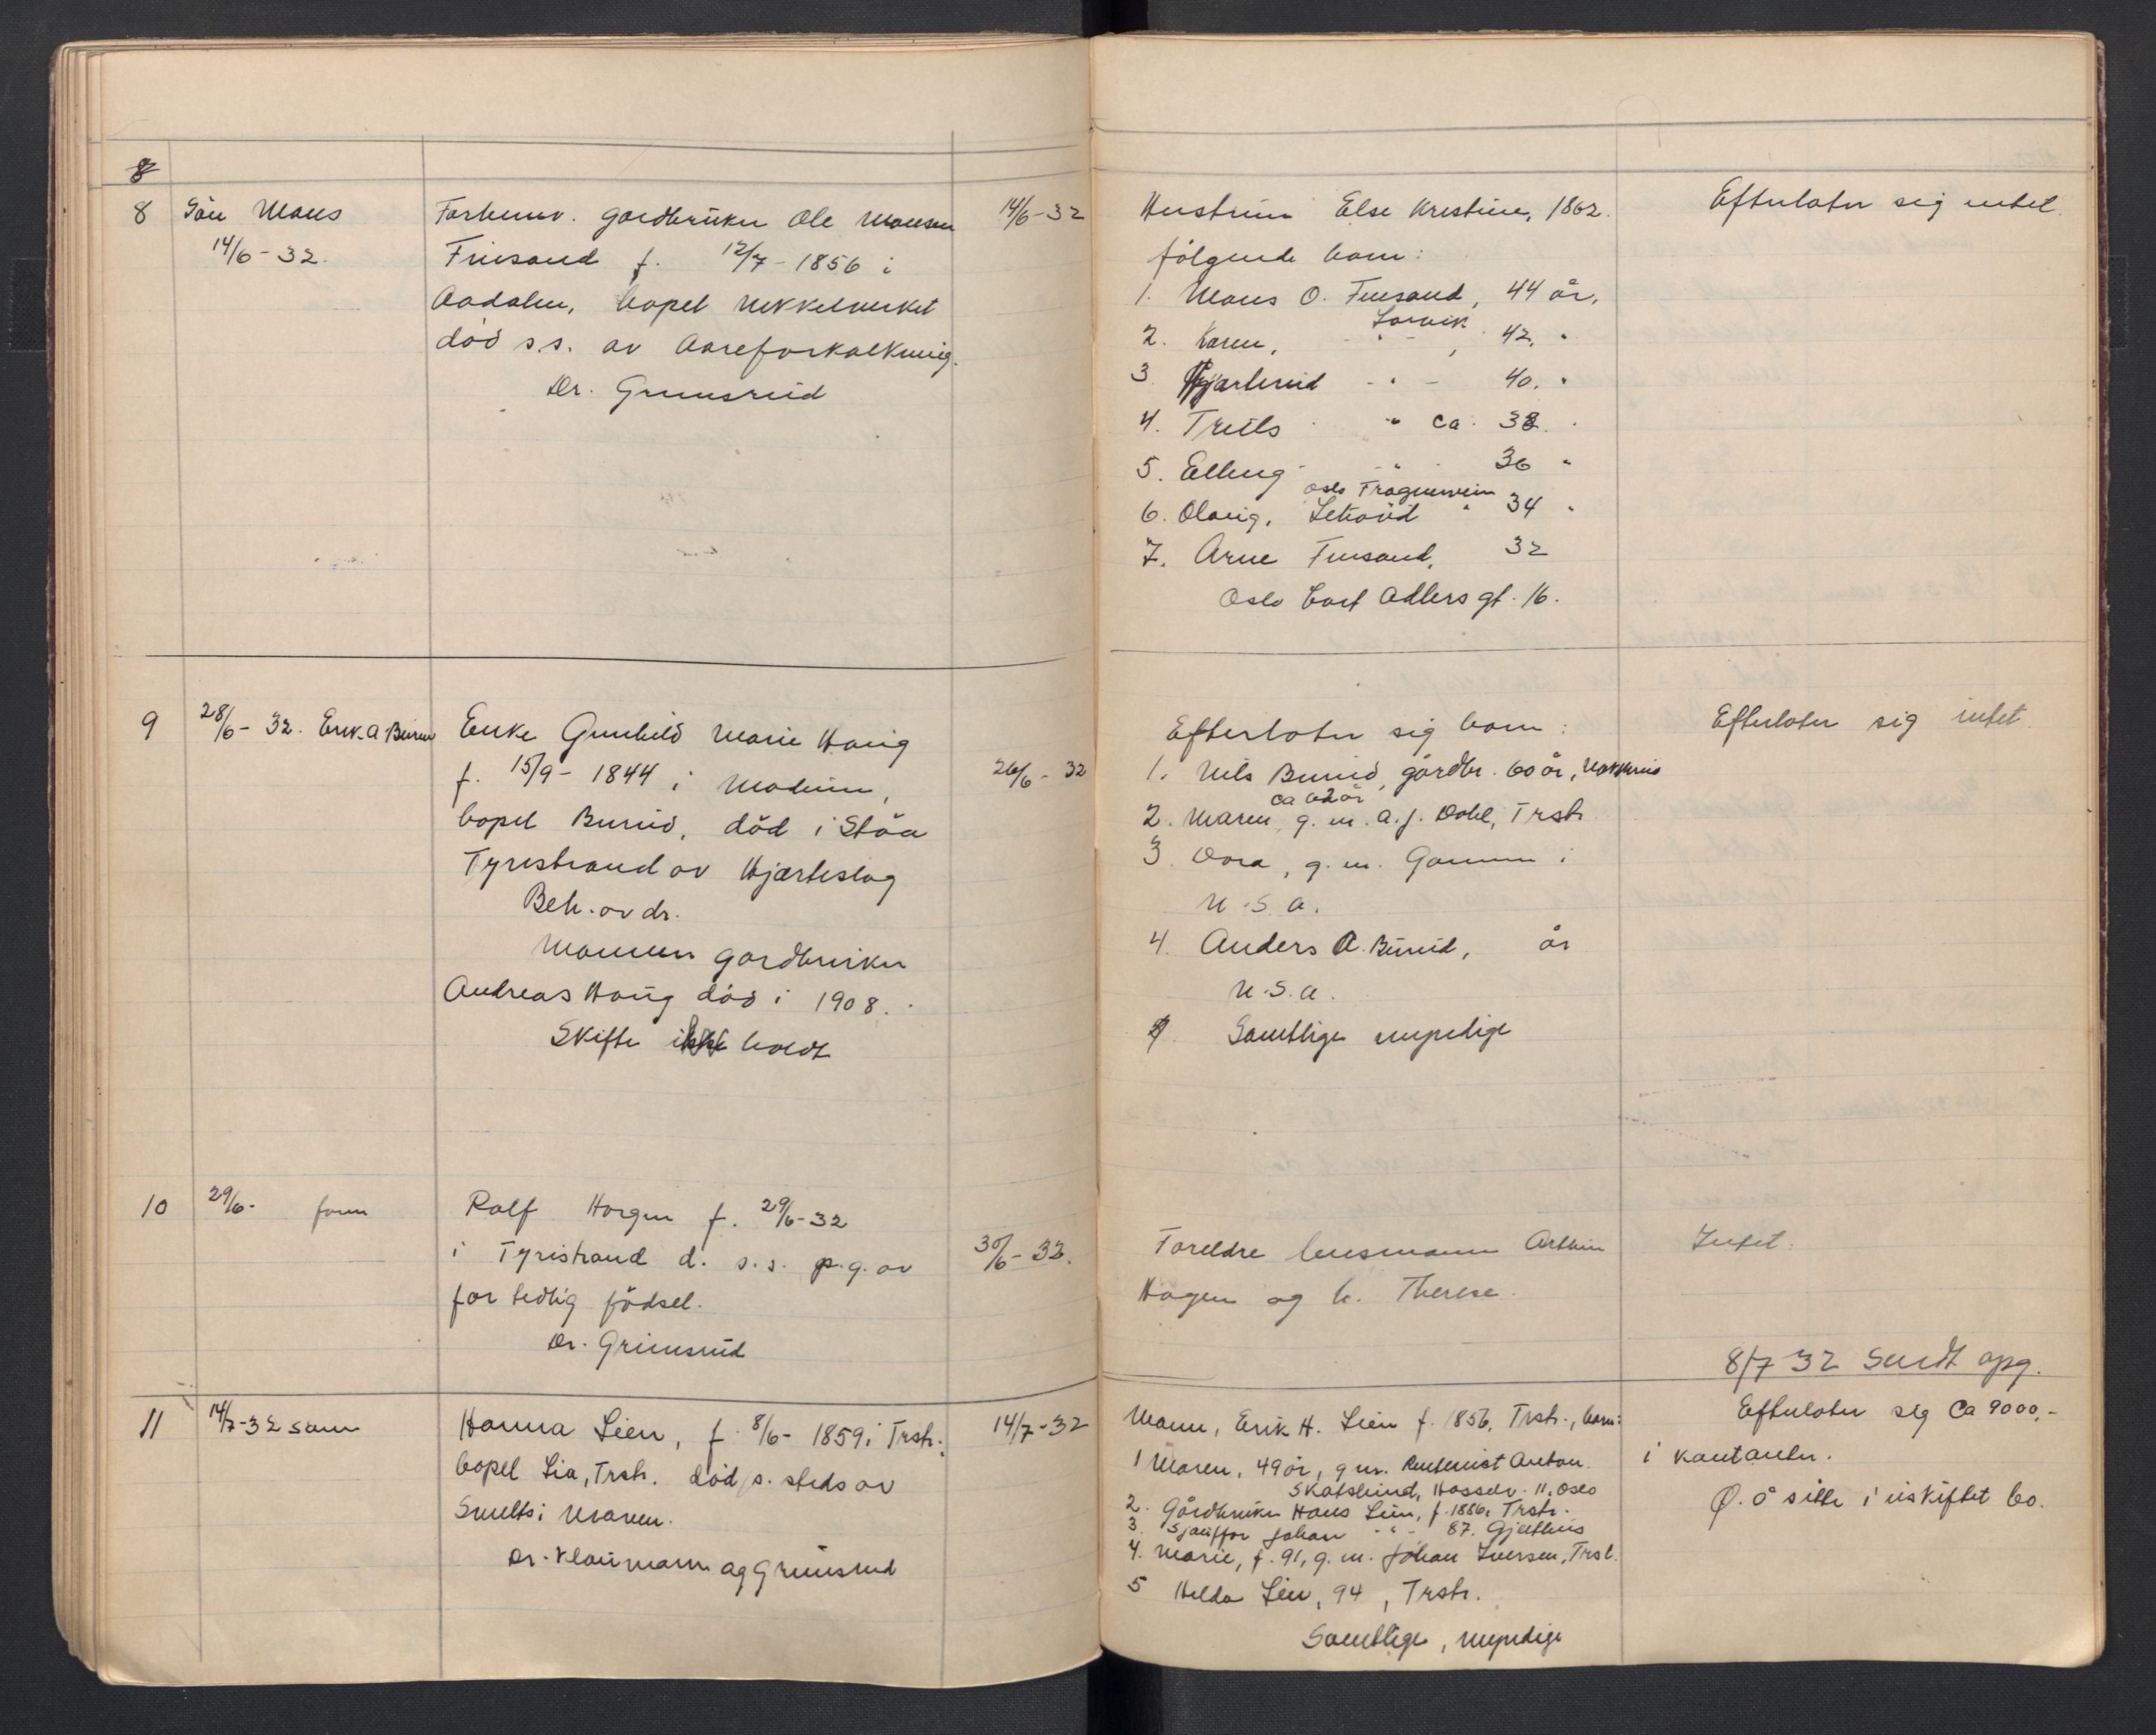 8
8 Sön Mons Forhenv. gardbruker Ole Monsen 14/6-32
14/6-32. Finsand f. 12/7-1856 i
Aadalen, bopel Nikkelverket
död s.s. av Aareforkalkning.
Dr. Grimsrud
Hustru Else Kristine, 1862. Efterlater sig intet.
følgende barn:
1. Mons O. Finsand, 44 år,
Larvik
2. Karen, - " - , 42. "
3. Hjartrud - " - 40. "
4. Truls " ca. 38.
5. Elling - " - 36 "
Oslo Frognervein
6. Olavig, " 34 "
7. Arne Finsand, 32
Oslo Cort Adlers gt. 16.
9 28/6-32. Erik A Burud Enke Gunhild Marie Haug
f. 15/9-1844 i Modum, 26/6-32
bopel Burud, död i Stöa
Tyristrand av Hjerteslag
Beh. av dr.
Mannen gardbruker
Andreas Haug död i 1908.
Skifte ikke holdt
Efterlater sig barn: Efterlater sig intet
1. Nils Burud, gårdbr. 60 år, Nakkerud
ca 62 år
2. Maren g. m. A. J. Dahl, Trstr.
3 Dora, g. m. i
U.S.A.
4. Anders A. Burud, år
U.S.A.
Samtlige myndige
10 29/6- farm Rolf Horgen f. 29/6-32
i Tyristrand d. s.s. p.g. av 30/6-32.
for tidlig födsel.
Dr. Grimsrud
Foreldre husmann Arthur Intet.
Hagen og h. Therese.
8/7 32 Sendt opg.
11 14/7-32 sam Hanna Lien, f. 8/6-1859 i Trstr. 14/7-32
bopel Lia, Trstr. död s. steds av
Svulst i Maven.
Dr. Klaumann og Grimsrud
Mann, Erik H. Lien f. 1856, Trstr., barn: Efterlater sig ca 9000,-
1 Maren, 49 år, g m. Anton i kontanter.
Skatsrud, Hasselv. 11, Oslo
2. Gårdbruker Hans Lien, f. 1886, Trstr. Ø. å sitte i uskiftet bo.
3. Sjauffør Johan - " - 87. Gjetthus
4. Marie, f. 91, g. m. Johan Iversen, Trst.
5 Hilda Lien, 94, Trstr.
Samtlige, myndige